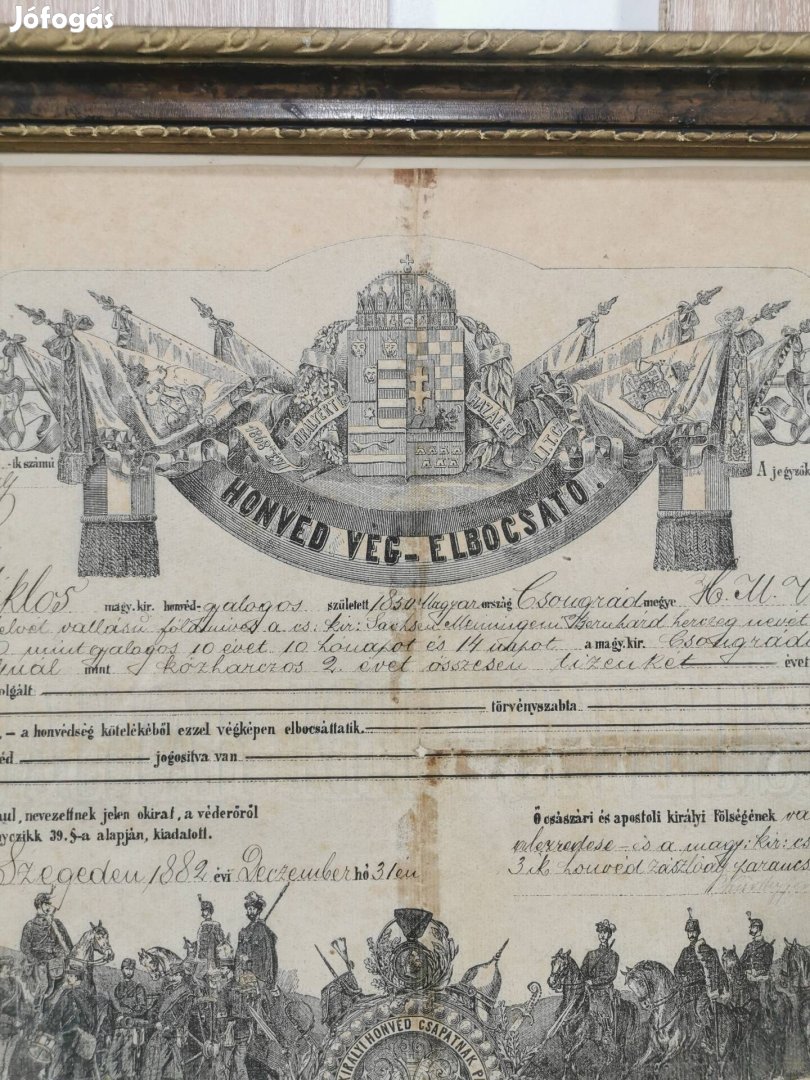 Jófogás
1868 XVI
KIRÁLYÉRT ÉS
HAZÁÉRT
I.T.C.
HONVÉD VÉG-ELBOCSATÓ.
-ik számú
A jegyzők
iklos magy. kir. honvéd-gyalogos született 1850 Magyar ország Csongrád megye H. M. V
elvét vallásu földmives a cs: kir: Sachsen Meiningeni Bernhard herczeg nevét
mint gyalogos 10 évet 10 honapot és 14 napot a magy. kir. Csongrád
nál mint közharczos 2 évet összesen tizenket évet
olgált törvényszabta
, – a honvédség kötelékéből ezzel végképen elbocsáttatik.
éd jogositva van
aul, nevezettnek jelen okirat, a véderőről
nyczikk 39. §-a alapján, kiadatott.
Szegeden 1882 évi Deczember hó 31én
Ő császári és apostoli királyi Fölségének va
alezredese és a magy: kir: cs
3 ik honvéd zászlóalj parancs
KIRÁLYI HONVÉD CSAPATNAK P